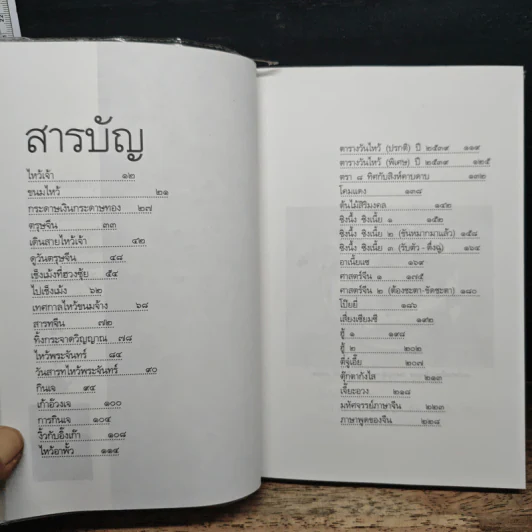 สารบัญ
ไหว้เจ้า ๑๒
ขนมไหว้ ๒๑
กระดาษเงินกระดาษทอง ๒๗
ตรุษจีน ๓๓
เดินสายไหว้เจ้า ๔๒
ดูวันตรุษจีน ๔๘
เช็งเม้งที่ฮวงซุ้ย ๕๔
ไปเช็งเม้ง ๖๒
เทศกาลไหว้ขนมจ้าง ๖๘
สารทจีน ๗๒
ทิ้งกระจาดวิญญาณ ๗๘
ไหว้พระจันทร์ ๘๔
วันสารทไหว้พระจันทร์ ๙๐
กินเจ ๙๔
เก้าอ๊วงเจ ๑๐๐
การกินเจ ๑๐๔
งิ้วกับอึ้งเก๊า ๑๐๘
ไหว้อาพั้ว ๑๑๔
ตารางวันไหว้ (ปรกติ) ปี ๒๕๓๙ ๑๑๙
ตารางวันไหว้ (พิเศษ) ปี ๒๕๓๙ ๑๒๕
ตรา ๘ ทิศกับสิงห์คาบดาบ ๑๓๒
โคมแดง ๑๓๘
ต้นไม้สิริมงคล ๑๔๒
ซิงนี้ ซิงเนี้ย ๑ ๑๕๒
ซิงนี้ ซิงเนี้ย ๒ (ขันหมากมาแล้ว) ๑๕๘
ซิงนี้ ซิงเนี้ย ๓ (รับตัว - ตึ่งฉู่) ๑๖๔
อาเนี้ยแซ ๑๖๙
ศาสตร์จีน ๑ ๑๗๕
ศาสตร์จีน ๒ (ต้องชะตา-ขีดชะตา) ๑๘๐
โป๊ยยี่ ๑๘๖
เสี่ยงเซียมซี ๑๙๒
ฮู้ ๑ ๑๙๘
ฮู้ ๒ ๒๐๒
ตี่จู่เอี๊ย ๒๐๗
ตุ๊กตากังไส ๒๑๓
เจี๊ยะฮวง ๒๑๘
มหัศจรรย์ภาษาจีน ๒๒๓
ภาษาพูดของจีน ๒๒๘